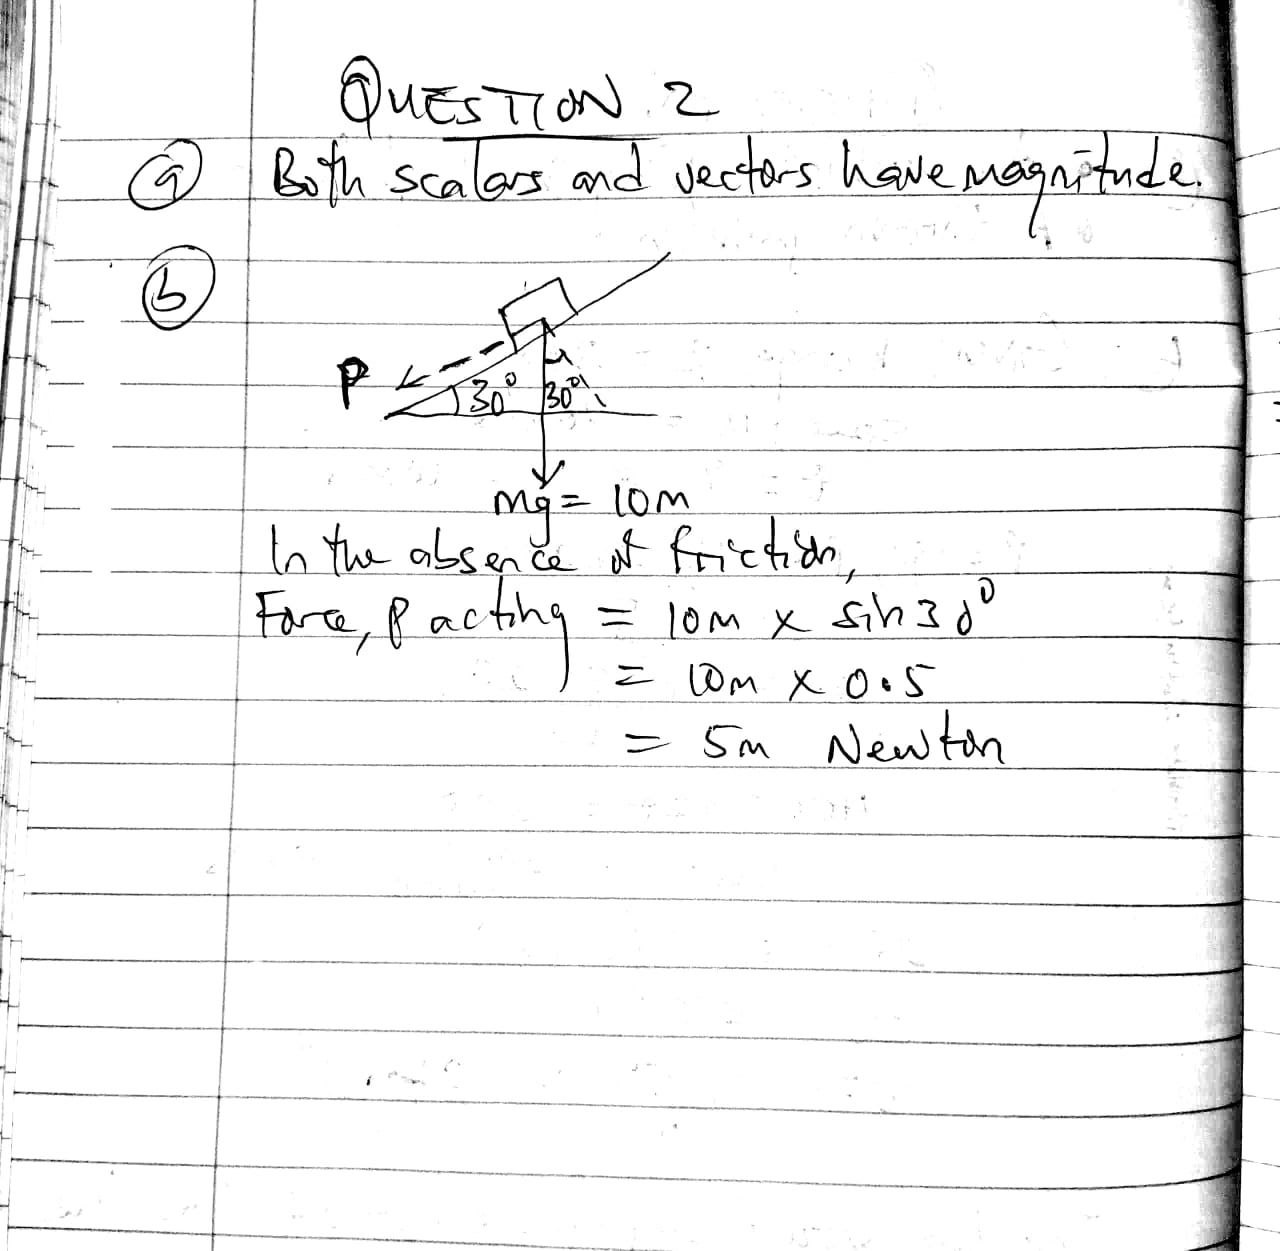 QUESTION 2
(a) Both scalars and vectors have magnitude.
(b)
P 30° 30°
mg = 10m
In the absence of friction,
Force, P acting = 10m x sin30°
= 10m x 0.5
= 5m Newton